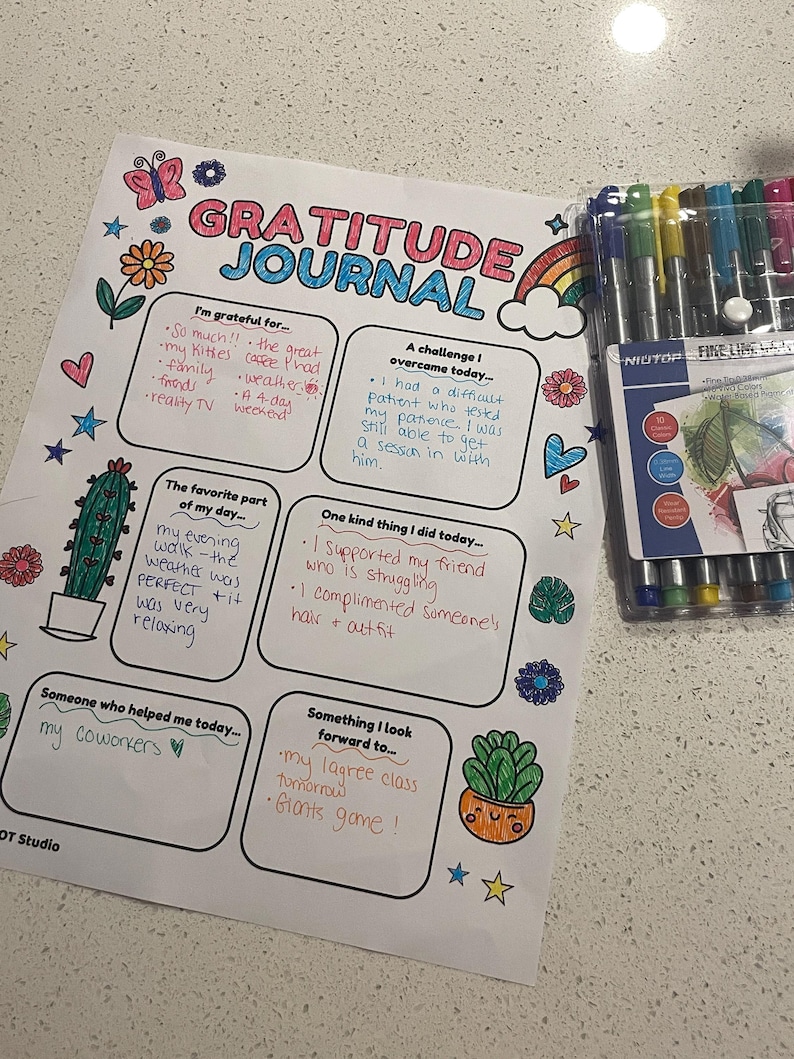 GRATITUDE
JOURNAL
I'm grateful for...
• So much!!
• my kitties
• family
• friends
• reality TV
• the great
coffee I had
• weather
• A 4-day
weekend
A challenge I
overcame today...
• I had a difficult
patient who tested
my patience. I was
still able to get
a session in with
him.
The favorite part
of my day...
my evening
walk - the
weather was
PERFECT + it
was very
relaxing
One kind thing I did today...
• I supported my friend
who is struggling
• I complimented someone's
hair + outfit
Someone who helped me today...
my coworkers
Something I look
forward to...
• my lagree class
tomorrow
• Giants game!
OT Studio
NIUTOP
FINE LINE
• Fine Tip 0.38mm
Viva Colors
• Water-Based Pigment
10
Classic
Colors
0.38mm
Line
Width
Wear
Resistant